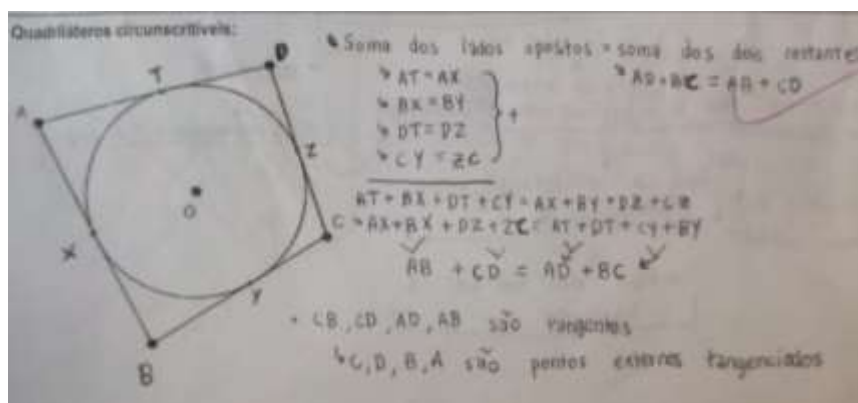 Quadriláteros circunscritíveis:
Soma dos lados opostos = soma dos dois restantes
AT = AX
BX = BY
DT = DZ
CY = ZC
+
AD + BC = AB + CD
AT + BX + DT + CY = AX + BY + DZ + CZ
AX + BX + DZ + ZC = AT + DT + CY + BY
AB + CD = AD + BC
+ CB, CD, AD, AB são tangentes
C, D, B, A são pontos externos tangenciados
A
T
D
Z
O
C
X
Y
B